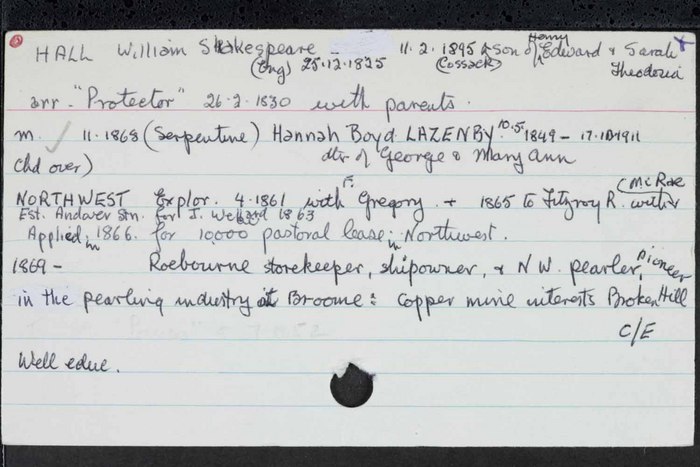 HALL William Shakespeare - 11.2.1895 son of Henry Edward & Sarah
(Eng) 25.12.1825 (Cossack) Theodosia
arr. "Protector" 26.2.1830 with parents.
m. 11.1868 (Serpentine) Hannah Boyd LAZENBY 10.5.1849 - 17.10.1911
Chd over) dtr of George & Mary Ann
NORTHWEST Explor. 4.1861 with F. Gregory. + 1865 to Fitzroy R. with (McRae
Est. Andover Stn. for J. Wellard 1863
Applied in 1866. for 10,000 pastoral lease in Northwest.
1869 - Roebourne storekeeper, shipowner, & N.W. pearler, pioneer
in the pearling industry at Broome: Copper mine interests Broken Hill
C/E
Well educ.